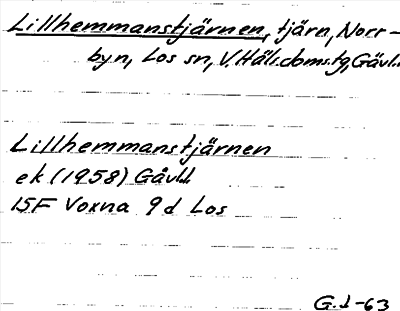 Lillhemmanstjärnen, tjärn, Norr-
byn, Los sn, V.Häls.doms.tg, Gävl.
Lillhemmanstjärnen
ek (1958) Gävl.l.
15F Voxna 9d Los
G.J-63